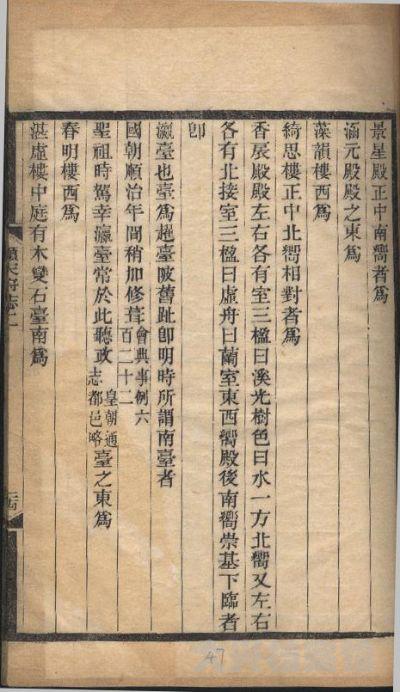 景星殿正中南嚮者爲
涵元殿殿之東爲
藻韻樓西爲
綺思樓正中北嚮相對者爲
香扆殿殿左右各有室三楹曰溪光樹色曰水一方北嚮又左右
各有北接室三楹曰虛舟曰蘭室東西嚮殿後南嚮崇基下臨者
卽
瀛臺也臺爲趯臺陂舊趾卽明時所謂南臺者
國朝順治年間稍加修葺會典事例六百二十二
聖祖時駕幸瀛臺常於此聽政皇朝通志都邑略臺之東爲
春明樓西爲
湛虛樓中庭有木變石臺南爲
順天府志二
47